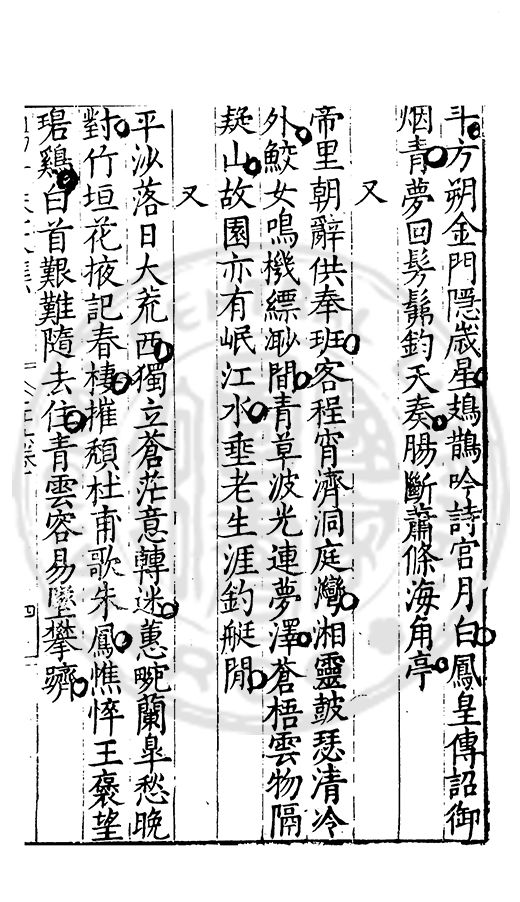 斗方朔金門隱歲星鳷鵲吟詩宮月白鳳皇傳詔御
烟青夢回髣髴鈞天奏腸斷蕭條海角亭
又
帝里朝辭供奉班客程宵濟洞庭灣湘靈鼓瑟清冷
外鮫女鳴機縹緲間青草波光連夢澤蒼梧雲物隔
疑山故園亦有岷江水垂老生涯釣艇閒
又
平沙落日大荒西獨立蒼茫意轉迷蕙畹蘭皐愁晚
對竹垣花掖記春棲摧頹杜甫歌朱鳳憔悴王褒望
碧鷄白首艱難隨去住青雲容易墜攀躋